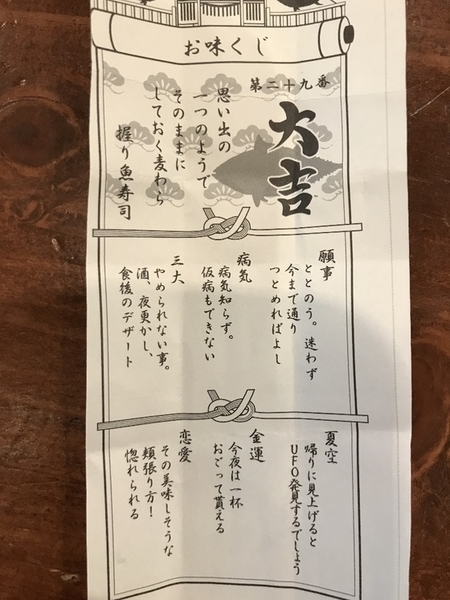 お味くじ
第二十九番
大吉
思い出の
一つのようで
そのままに
しておく麦わら
握り魚寿司
願事
ととのう。迷わず
今まで通り
つとめればよし
病気
病気知らず。
仮病もできない
三大
やめられない事。
酒、夜更かし、
食後のデザート
夏空
帰りに見上げると
UFO発見するでしょう
金運
今夜は一杯
おごって貰える
恋愛
その美味しそうな
頬張り方！
惚れられる